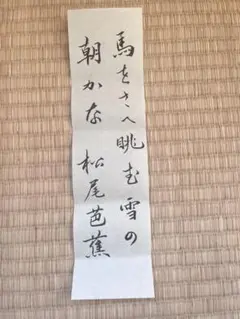 馬をさへ眺む雪の
朝かな 松尾芭蕉